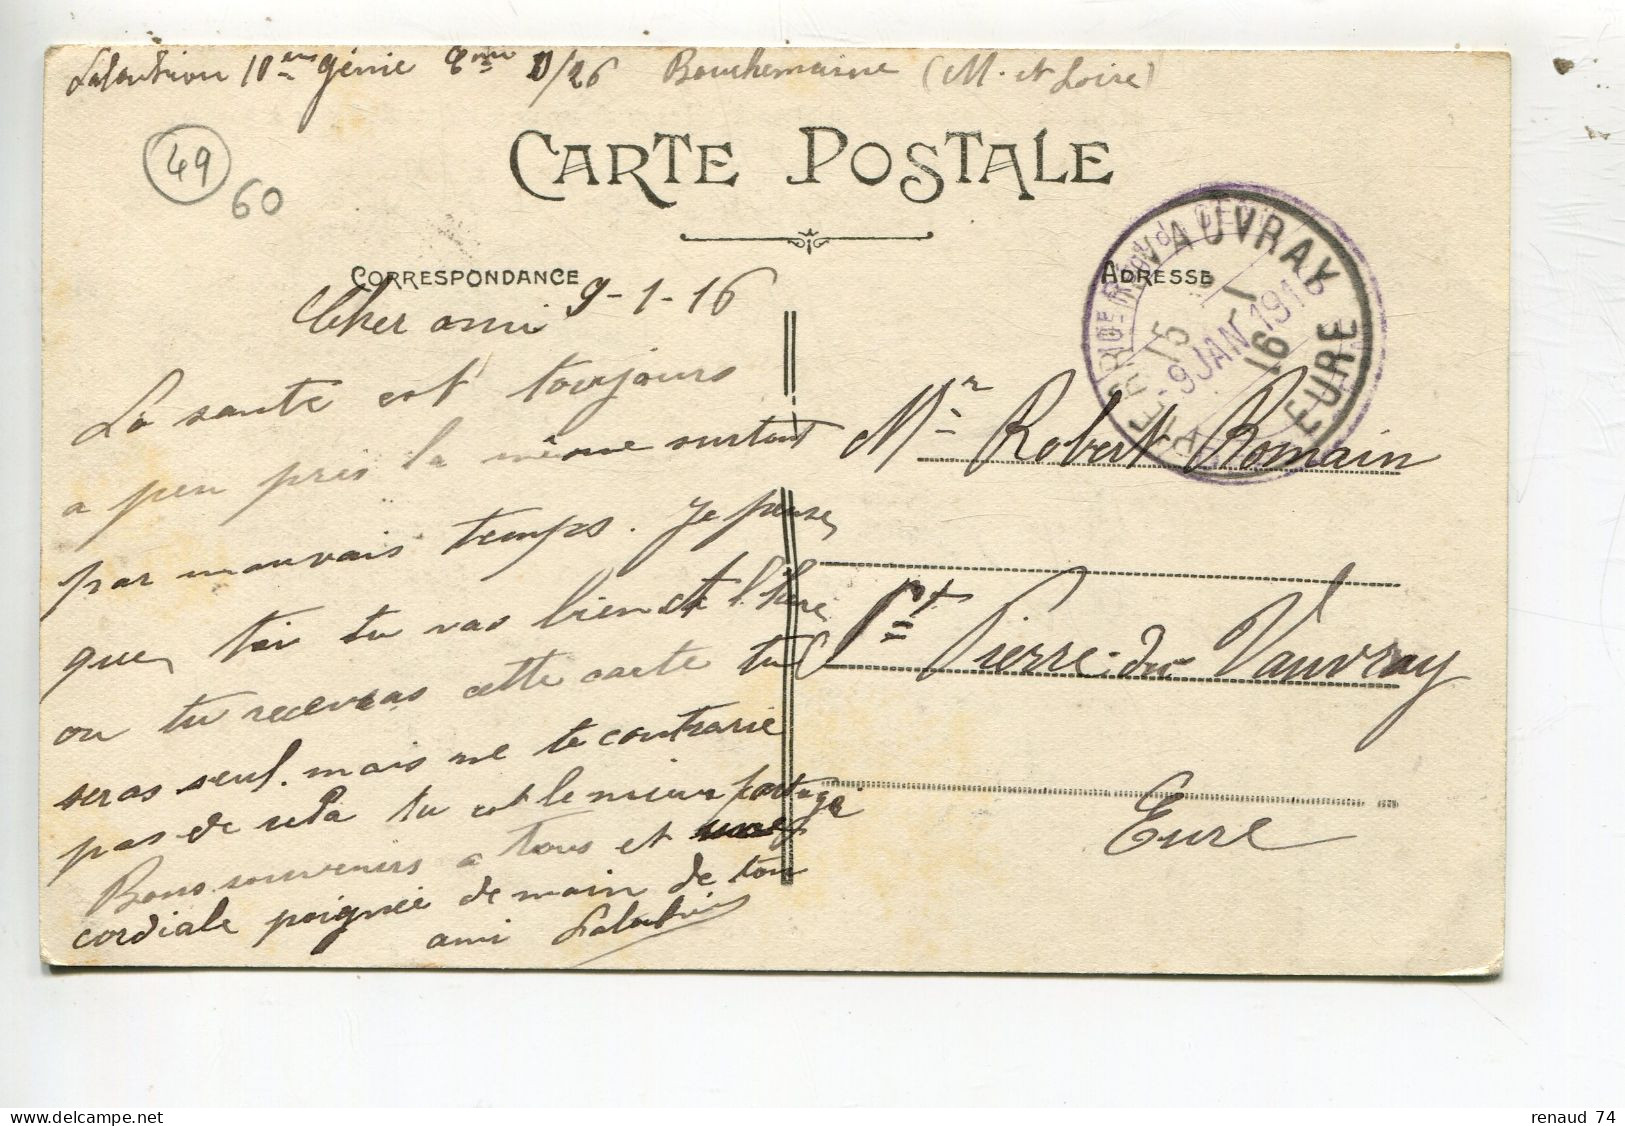 10em génie Cnie D/26 Bouchemaine (M. et Loire)
49
60
CARTE POSTALE
CORRESPONDANCE
ADRESSE
9-1-16
Cher ami
La santé est toujours
a peu pres la même surtout
par mauvais temps. Je pense
que toi tu vas bien et l'heure
ou tu recevras cette carte tu
seras seul. mais ne te contrarie
pas de cela tu est le mieux partagé
Bons souvenirs a tous et une
cordiale poignée de main de ton
ami
VAUVRAY
EURE
15
16
9 JAN 1916
Mr Robert Romain
St Pierre-du Vauvray
Eure
renaud 74